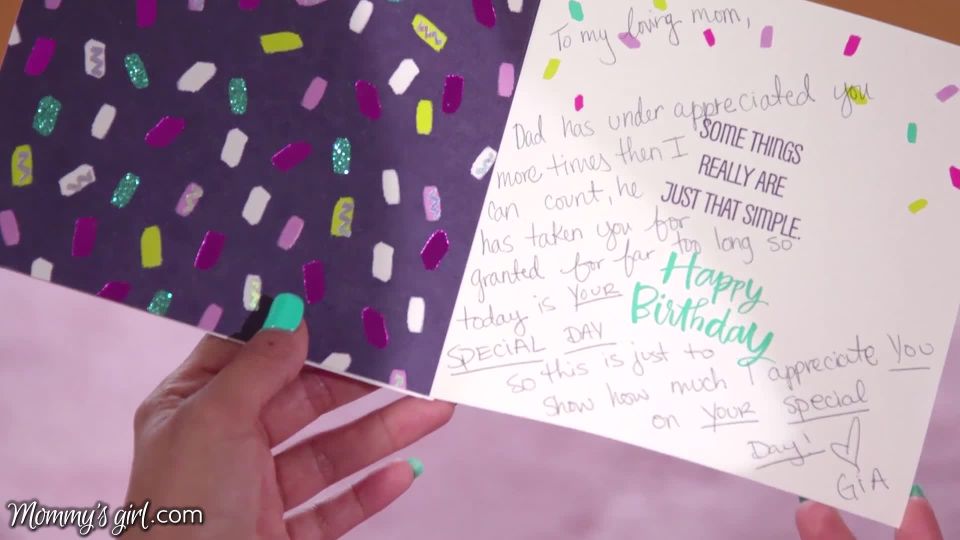 To my loving mom,
Dad has under appreciated you
more times then I
can count, he
has taken you for
granted for far too long so
today is YOUR
SPECIAL DAY
so this is just to
show how much I appreciate YOU
on YOUR special
Day! ♡
GiA
SOME THINGS
REALLY ARE
JUST THAT SIMPLE.
Happy
Birthday
Mommy's girl.com